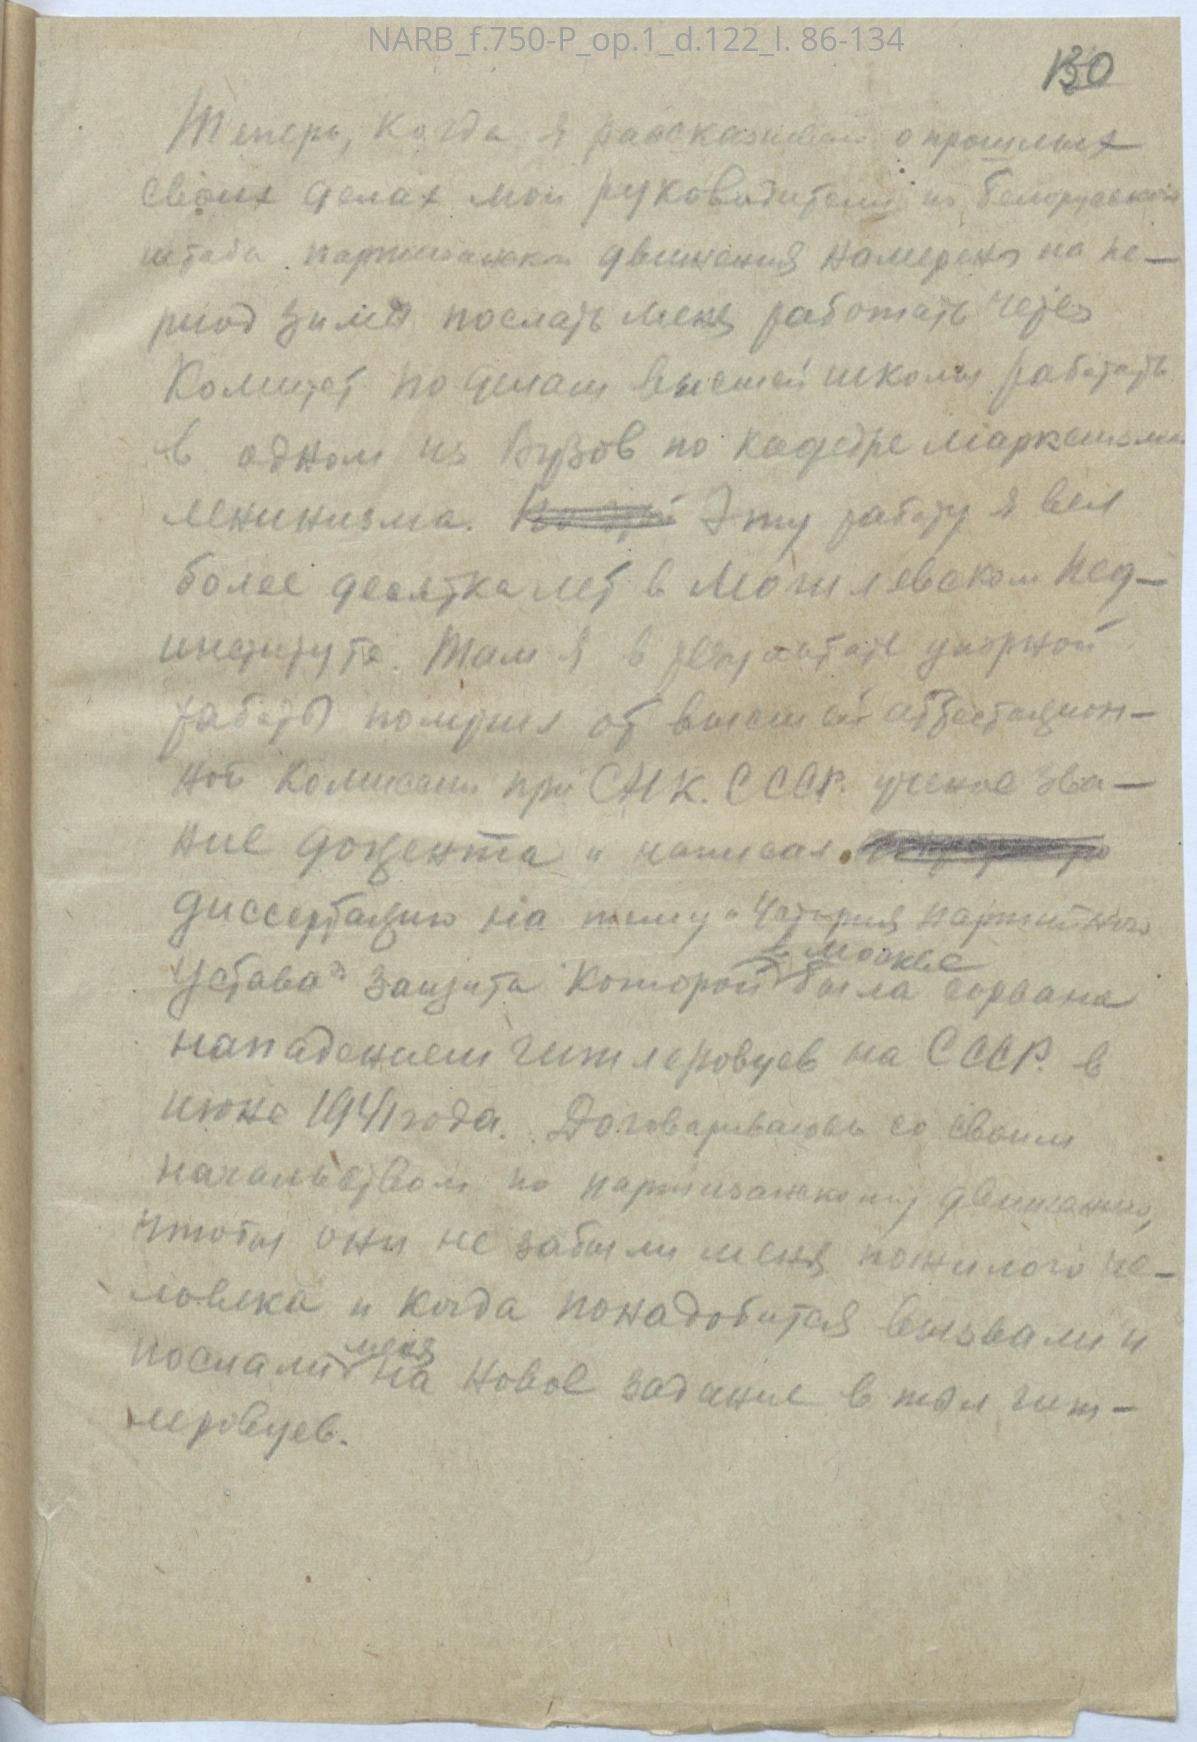 NARB_f.750-P_op.1_d.122_l. 86-134
130
Теперь, когда я рассказываю о прошлых
своих делах мои руководители из Белорусского
штаба партизанского движения намерены на пе-
риод зимы послать меня работать через
Комитет по делам высшей школы работать
в одном из Вузов по кафедре марксизма
ленинизма. Эту работу я вел
более десятка лет в Могилевском Пед-
институте. Там я в результате упорной
работы получил от высшей аттестацион-
ной Комиссии при СНК. СССР. ученое зва-
ние доцента и написал
диссертацию на тему "История партийного
устава" защита которой в Москве была сорвана
нападением гитлеровцев на СССР. в
июне 1941 года. Договариваюсь со своим
начальством по партизанскому движению,
чтобы они не забыли меня пожилого че-
ловека и когда понадобится вызвали и
послали меня на новое задание в тыл гит-
леровцев.